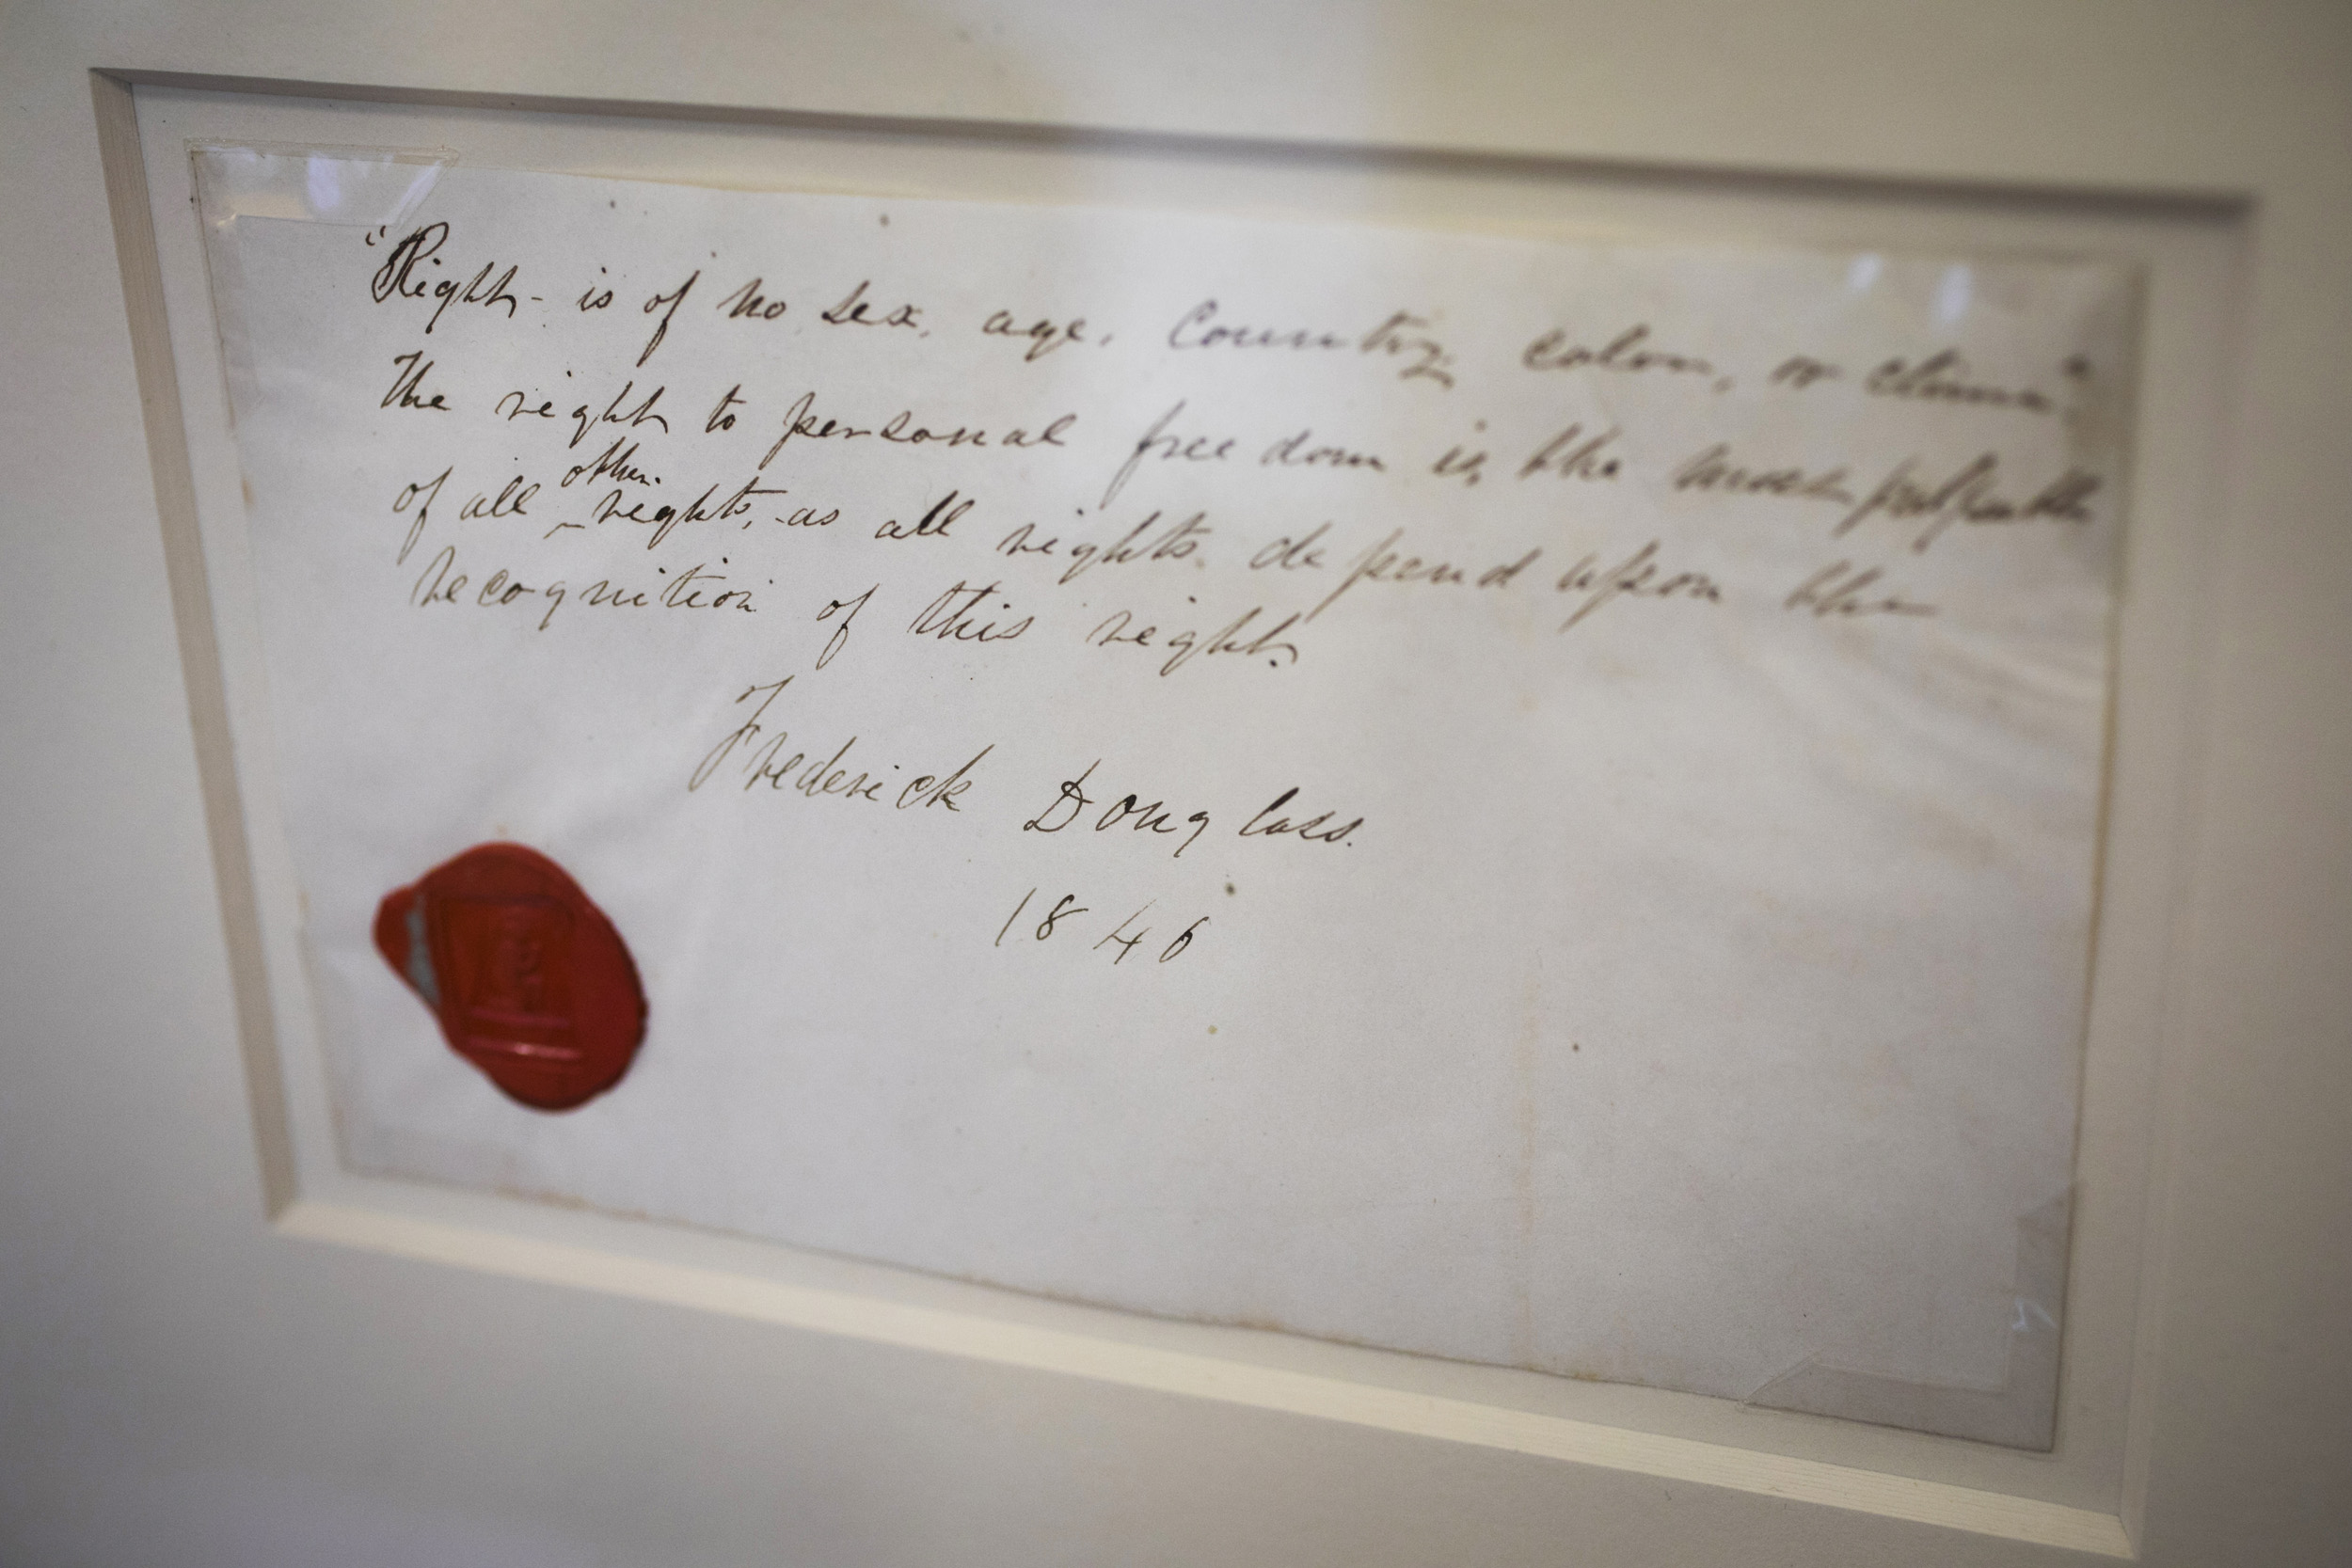 "Right - is of no sex, age, country, color, or clime".
The right to personal freedom is, the most palpable
of all other rights, - as all rights depend upon the
recognition of this right.
Frederick Douglass.
1846